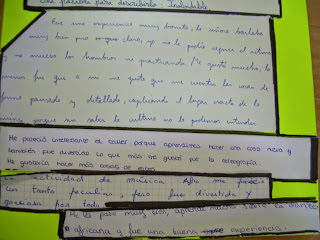 Una palabra para describirlo: Inolvidable
Fue una experiencia muy bonita, la niños bailaba
muy bien pero no le podía seguir el ritmo
y no mueves los hombros ni practicando. Me gustó mucho, lo
que a mi me guste que me cuenten las cosas de
forma pausada y detallada, explicando el lugar exacto de la
porque sin saber la cultura no lo podemos entender
Me pareció interesante el taller porque aprendimos hacer una cosa nueva y
también fue divertido lo que más me gustó fue la coreografía
Me gustaría hacer más cosas de estas.
La actividad de música
un tanto peculiar, pero fue divertida y
graciosa por todo
Me lo pase muy bien, aprendí mucho sobre la danza
africana y fue una buena experiencia.